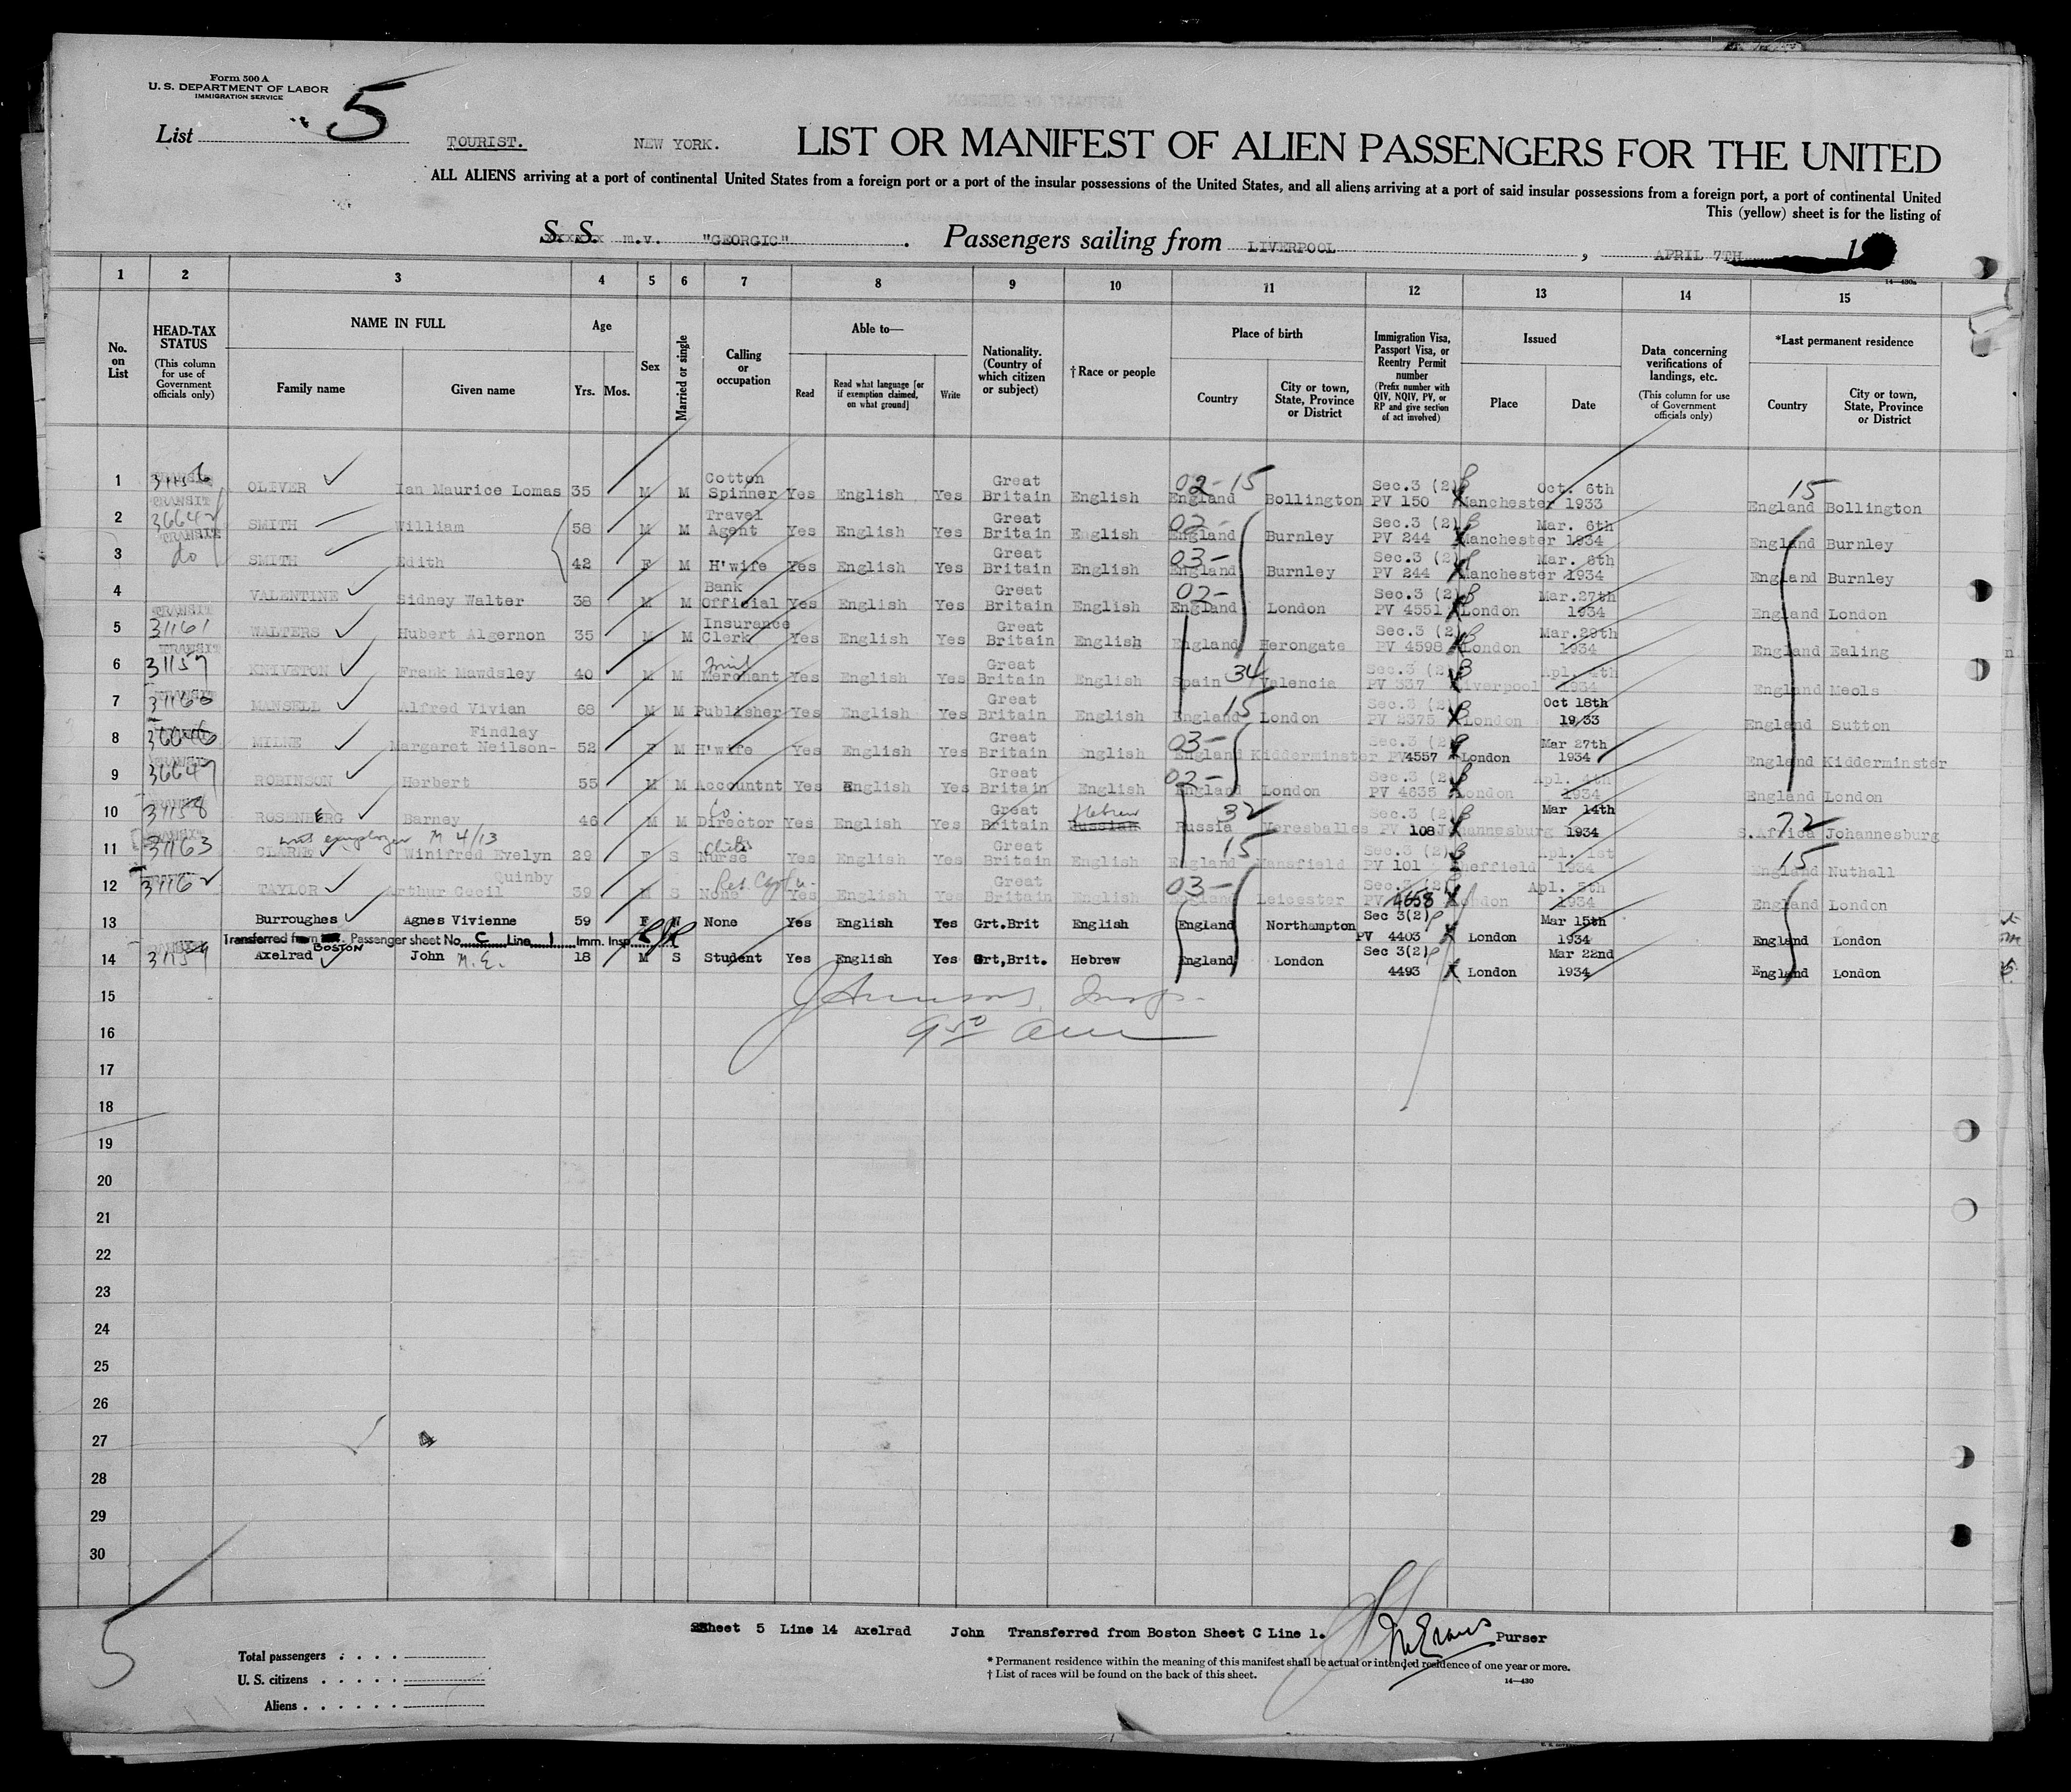 Form 500 A
U. S. DEPARTMENT OF LABOR
IMMIGRATION SERVICE
List 5
TOURIST. NEW YORK. LIST OR MANIFEST OF ALIEN PASSENGERS FOR THE UNITED
ALL ALIENS arriving at a port of continental United States from a foreign port or a port of the insular possessions of the United States, and all aliens arriving at a port of said insular possessions from a foreign port, a port of continental United
This (yellow) sheet is for the listing of
S. S. m.v. "GEORGIC" . Passengers sailing from LIVERPOOL , APRIL 7TH 1
14—430a
1 2 3 4 5 6 7 8 9 10 11 12 13 14 15
No. on List
HEAD-TAX STATUS (This column for use of Government officials only)
NAME IN FULL
Family name Given name
Age
Yrs. Mos.
Sex
Married or single
Calling or occupation
Able to—
Read Read what language [or if exemption claimed, on what ground] Write
Nationality. (Country of which citizen or subject)
† Race or people
Place of birth
Country City or town, State, Province or District
Immigration Visa, Passport Visa, or Reentry Permit number (Prefix number with QIV, NQIV, PV, or RP and give section of act involved)
Issued
Place Date
Data concerning verifications of landings, etc. (This column for use of Government officials only)
*Last permanent residence
Country City or town, State, Province or District
1 TRANSIT 31156 OLIVER Ian Maurice Lomas 35 M M Cotton Spinner Yes English Yes Great Britain English 02-15 England Bollington Sec.3 (2) PV 150 Manchester Oct. 6th 1933 15 England Bollington
2 TRANSIT 36642 SMITH William 58 M M Travel Agent Yes English Yes Great Britain English 02- England Burnley Sec.3 (2) PV 244 Manchester Mar. 6th 1934 England Burnley
3 TRANSIT do SMITH Edith 42 F M H'wife Yes English Yes Great Britain English 03- England Burnley Sec.3 (2) PV 244 Manchester Mar. 6th 1934 England Burnley
4 VALENTINE Sidney Walter 38 M M Bank Official Yes English Yes Great Britain English 02- England London Sec.3 (2) PV 4551 London Mar.27th 1934 England London
5 TRANSIT 31161 WALTERS Hubert Algernon 35 M M Insurance Clerk Yes English Yes Great Britain English England Herongate Sec.3 (2) PV 4598 London Mar.29th 1934 England Ealing
6 TRANSIT 31157 KNIVETON Frank Mawdsley 40 M M Merchant Yes English Yes Great Britain English Spain 34 Valencia Sec.3 (2) PV 337 Liverpool Apl. 4th 1934 England Meols
7 TRANSIT 31160 MANSELL Alfred Vivian 68 M M Publisher Yes English Yes Great Britain English England 15 London Sec.3 (2) PV 2375 London Oct 18th 1933 England Sutton
8 36646 MILNE Margaret Neilson-Findlay 52 F M H'wife Yes English Yes Great Britain English 03- England Kidderminster Sec.3 (2) PV 4557 London Mar 27th 1934 England Kidderminster
9 36647 ROBINSON Herbert 55 M M Accountnt Yes English Yes Great Britain English 02- England London Sec.3 (2) PV 4635 London Apl. 4th 1934 England London
10 31158 ROSENBERG Barney 46 M M Co. Director Yes English Yes Great Britain Hebrew Russian Russia 32 Sec.3 (2) PV 108 Johannesburg Mar 14th 1934 72 S.Africa Johannesburg
with employer M 4/13
11 TRANSIT 31163 CLARKE Winifred Evelyn 29 F S Nurse Yes English Yes Great Britain English England 15 Mansfield Sec.3 (2) PV 101 Sheffield Apl. 1st 1934 15 England Nuthall
12 31162 TAYLOR Arthur Cecil Quinby 39 M S None Yes English Yes Great Britain English 03- England Leicester Sec.3 (2) PV 4658 London Apl. 5th 1934 England London
13 Burroughes Agnes Vivienne 59 F W None Yes English Yes Grt.Brit English England Northampton Sec 3(2) PV 4403 London Mar 15th 1934 England London
Transferred from BOSTON Passenger sheet No. C Line 1 Imm. Insp.
14 31159 Axelrad John M.E. 18 M S Student Yes English Yes Grt,Brit. Hebrew England London Sec 3(2) 4493 London Mar 22nd 1934 England London
15
16
17
18
19
20
21
22
23
24
25
26
27
28
29
30
5
Sheet 5 Line 14 Axelrad John Transferred from Boston Sheet C Line 1.
Purser
Total passengers
U. S. citizens
Aliens
* Permanent residence within the meaning of this manifest shall be actual or intended residence of one year or more.
† List of races will be found on the back of this sheet.
14—430